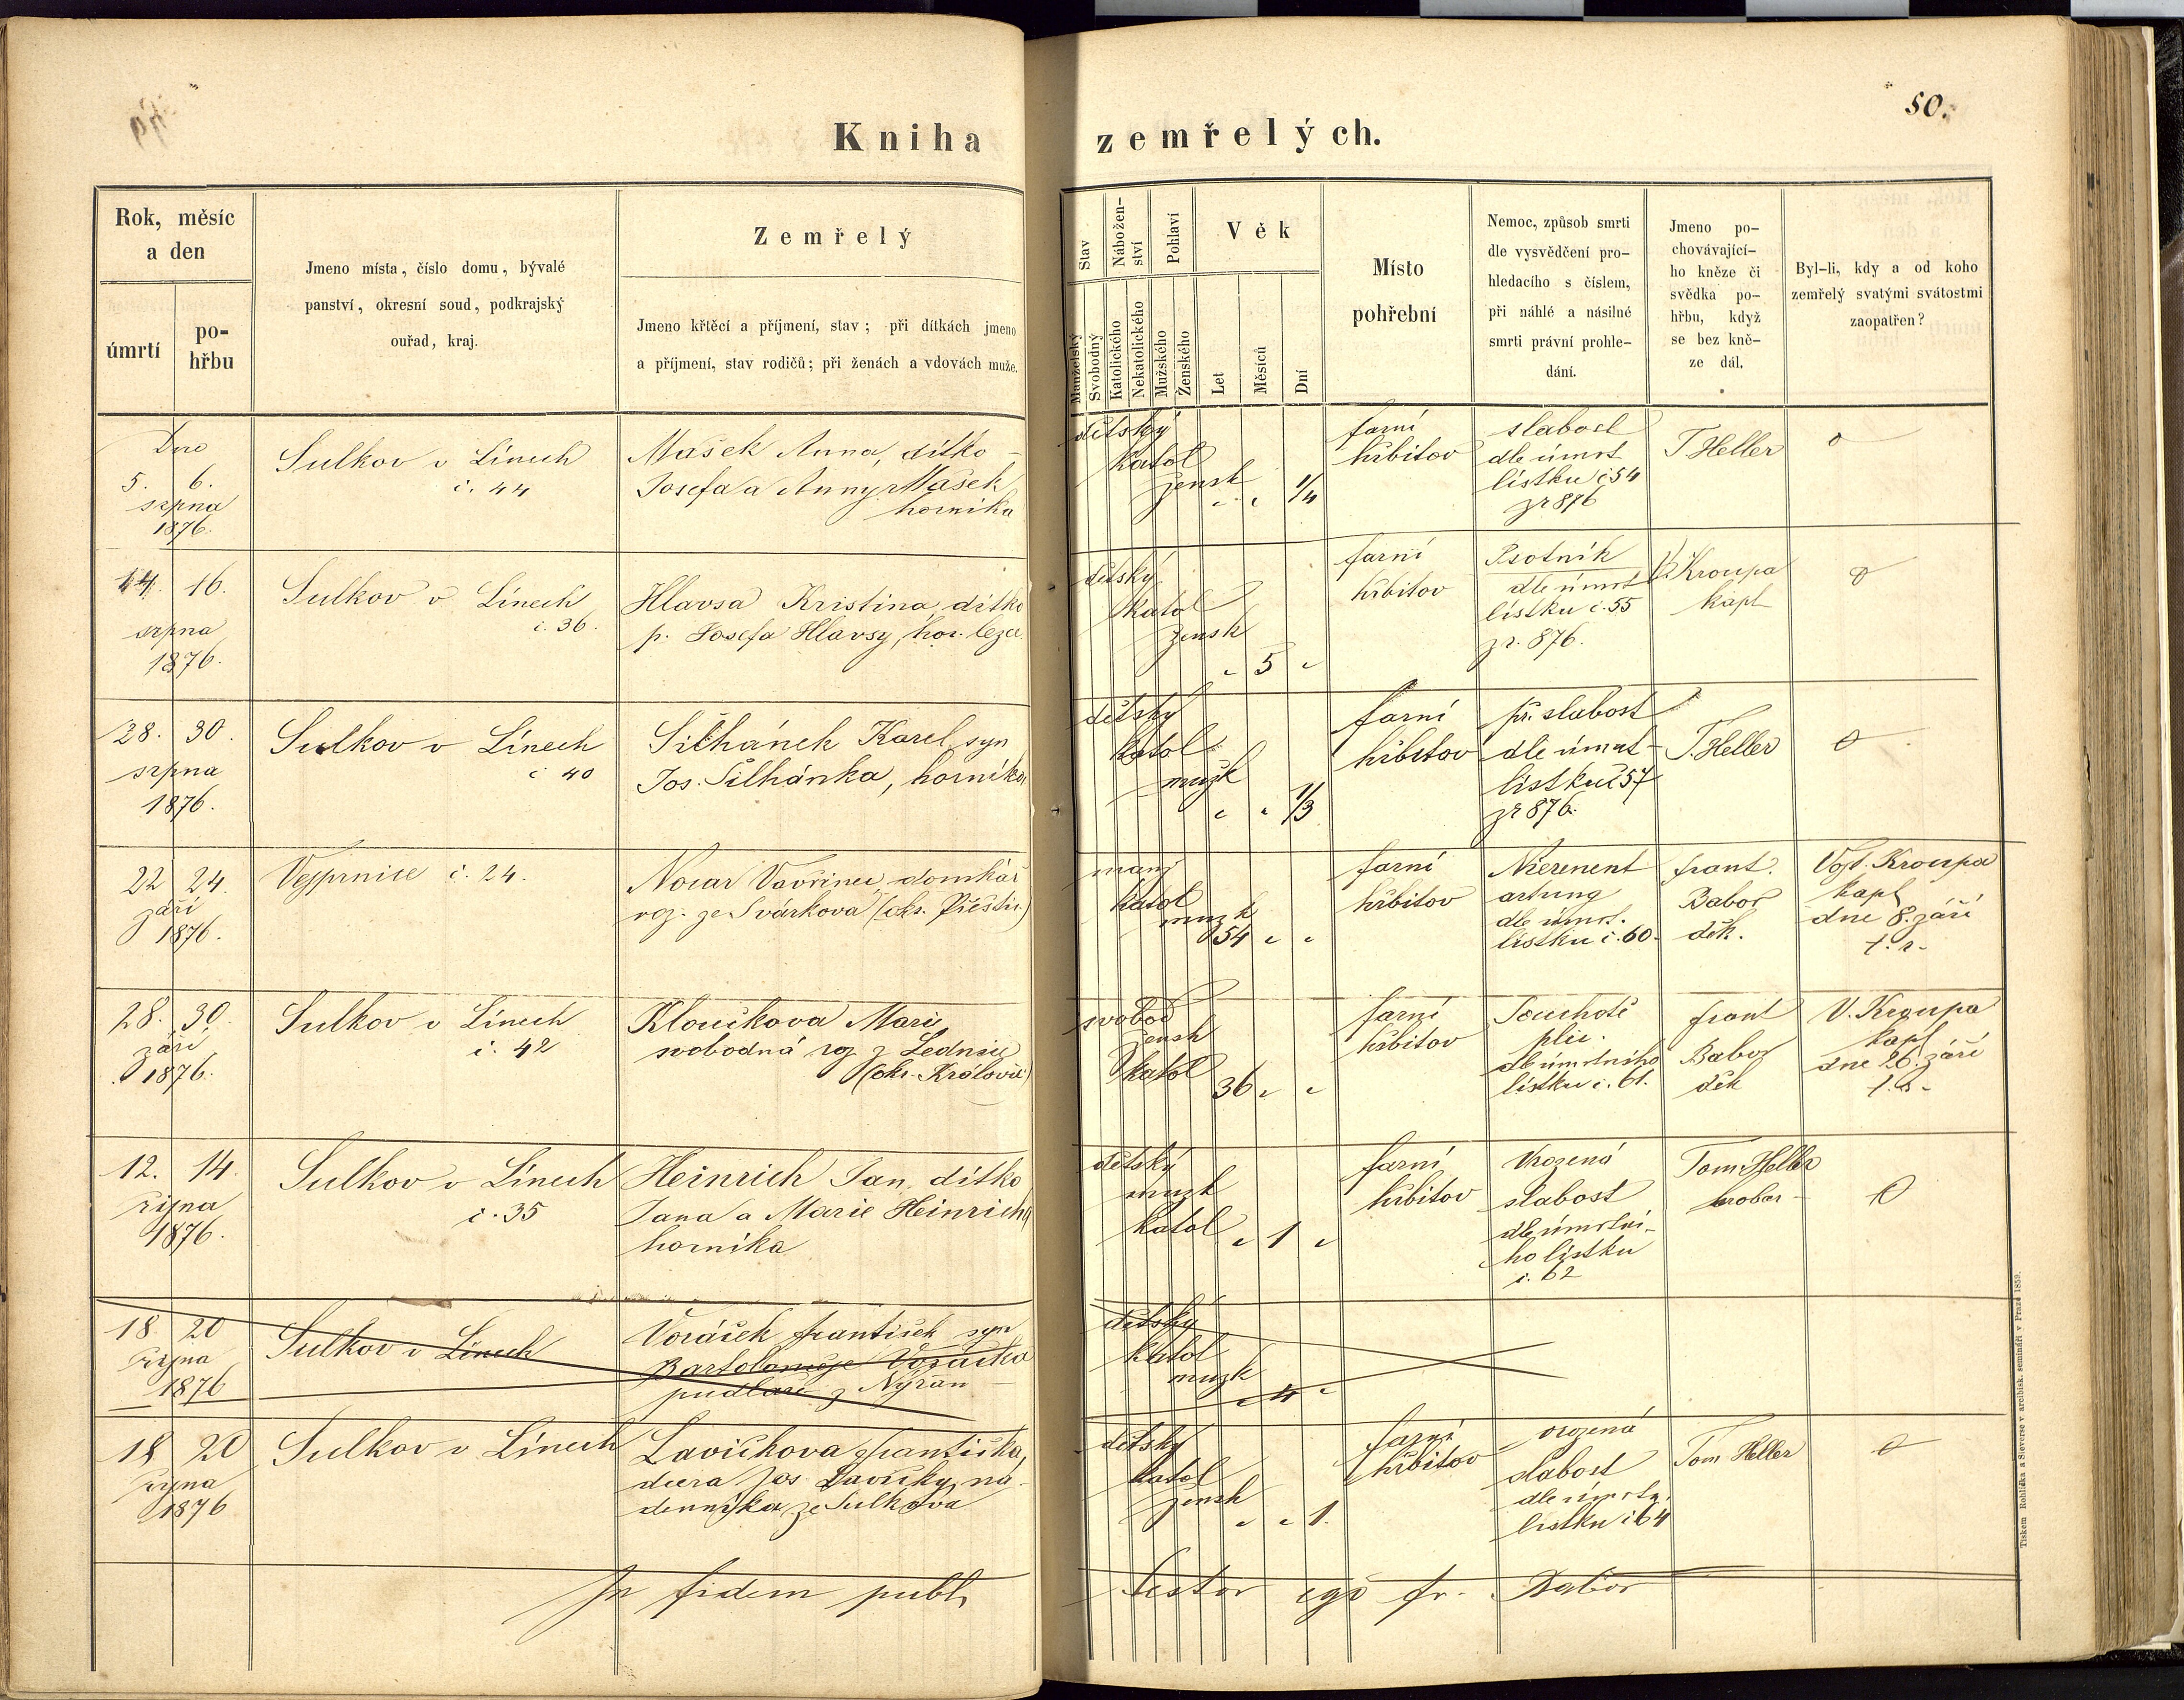 50.
Kniha zemřelých.
Rok, měsíc
a den
úmrtí
po-
hřbu
Jmeno místa, číslo domu, bývalé
panství, okresní soud, podkrajský
ouřad, kraj.
Zemřelý
Jmeno křtěcí a příjmení, stav; při dítkách jmeno
a příjmení, stav rodičů; při ženách a vdovách muže.
Stav
Nábožen-
ství
Pohlaví
Věk
Manželský
Svobodný
Katolického
Nekatolického
Mužského
Ženského
Let
Měsíců
Dní
Místo
pohřební
Nemoc, způsob smrti
dle vysvědčení pro-
hledacího s číslem,
při náhlé a násilné
smrti právní prohle-
dání.
Jmeno po-
chovávající-
ho kněze či
svědka po-
hřbu, když
se bez kně-
ze dál.
Byl-li, kdy a od koho
zemřelý svatými svátostmi
zaopatřen?
Dne
5. 6.
srpna
1876.
Sulkov v Línech
č. 44
Mašek Anna, dítko
Josefa a Anny Mašek
horníka
dětský
katol
žensk
" " 1/4
farní
hřbitov
slabost
dle úmrt
lístku č 54
z r 876
T. Heller
0
14. 16.
srpna
1876.
Sulkov v Línech
č. 36.
Hlavsa Kristina, dítko
p. Josefa Hlavsy, hor. leza
dětský
katol
žensk
" 5 "
farní
hřbitov
Psotník
dle úmrt
lístku č. 55
z r. 876.
V. Kroupa
kapl
0
28. 30.
srpna
1876.
Sulkov v Línech
č 40
Šilhánek Karel, syn
Jos. Šilhánka, horníka
dětský
katol
mužk
" " 1/3
farní
hřbitov
př. slabost
dle úmrt-
lístku č 57
z r 876.
T. Heller
0
22 24.
září
1876.
Vejprnice č. 24.
Nocar Vavřinec, domkář
roz. ze Svárkova (okr. Přeštic.)
manž
katol
muzk
54 " "
farní
hřbitov
Nierenent
artung
dle úmrt.
lístku č. 60.
frant.
Babor
děk.
Vojt. Kroupa
kapl
dne 8. září
t. r.
28. 30.
září
1876.
Sulkov v Línech
č. 42
Kloučkova Marie
svobodná roz z Lednice
(okr. Královic)
svobod
žensk
katol
36 " "
farní
hřbitov
Souchotě
plic.
dle úmrtního
lístku č. 61.
frant
Babor
děk
V. Kroupa
kapl
dne 26. září
t. r.
12. 14.
října
1876.
Sulkov v Línech
č. 35
Heinrich Jan, dítko
Jana a Marie Heinricha
horníka
dětský
muzk
katol
" 1 "
farní
hřbitov
Vrozená
slabost
dle úmrtní-
ho lístku
č. 62
Tom. Heller
hrobar
0
18 20
října
1876
Sulkov v Línech
Voráček František syn
Bartoloměje Voráčka
pudlaře z Nýřan
dětský
katol
muzk
" 4 "
18 20
října
1876
Sulkov v Línech
Lavičkova Františka,
dcera Jos Lavičky, ná-
denníka ze Sulkova
dětský
katol
žensk
" " 1.
farní
hřbitov
vrozená
slabost
dle úmrtn.
lístku č 64
Tom Heller
0
In fidem publ. testor ego fr. Babor
Tiskem Rohlíčka a Sieverse v arcibisk. semináři v Praze 1859.